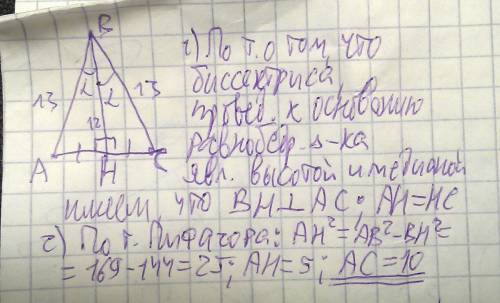 B
1) По т. о том, что
биссектриса,
провед. к основанию
равнобедр. Δ-ка
явл. высотой и медианой
имеем, что BH⊥AC; AH=HC
2) По т. Пифагора: AH²=AB²-BH²=
=169-144=25; AH=5; AC=10
13
α
α
13
12
A
H
C